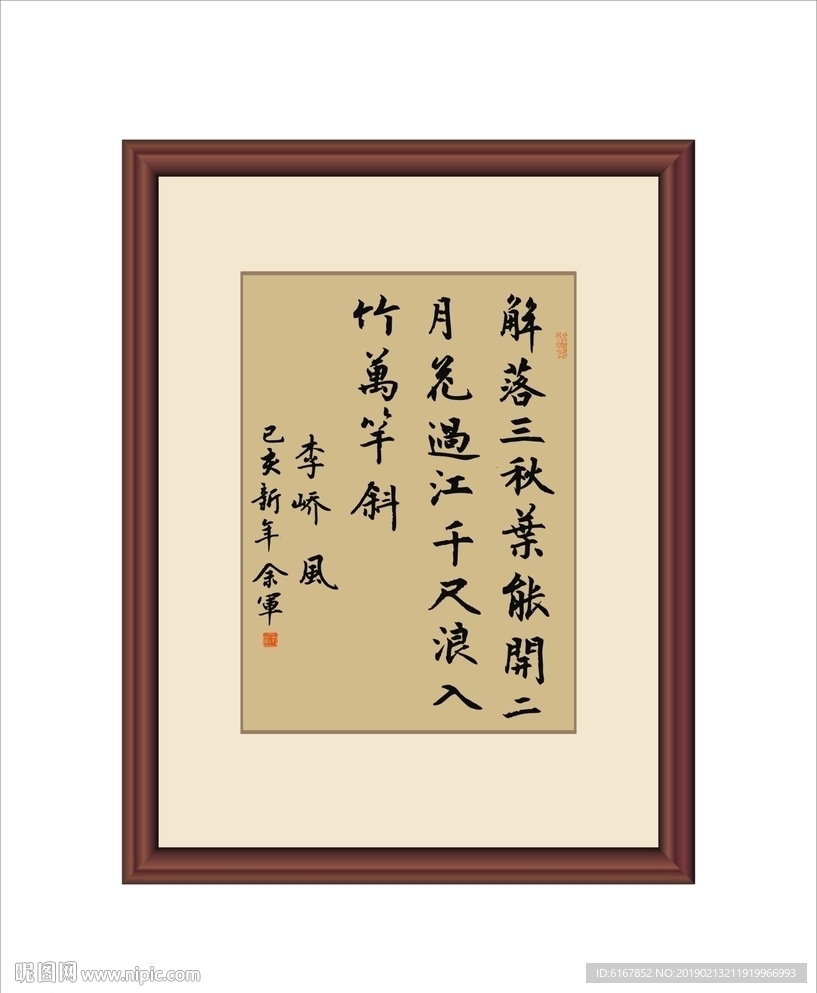 解落三秋葉能開二
月花過江千尺浪入
竹萬竿斜
李嶠 風
己亥新年 余軍
昵图网 www.nipic.com
ID:6167852 NO:20190213211919966993